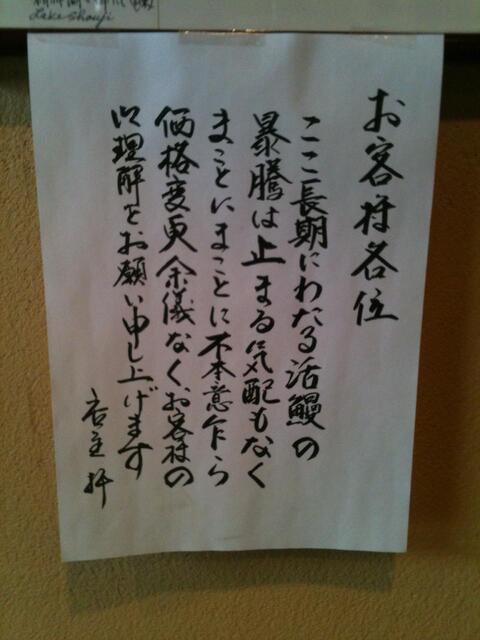 お客様各位
ここ長期にわたる活鰻の
暴騰は止まる気配もなく
まことにまことに不本意乍ら
価格変更余儀なく、お客様の
御理解をお願い申し上げます
店主 拝